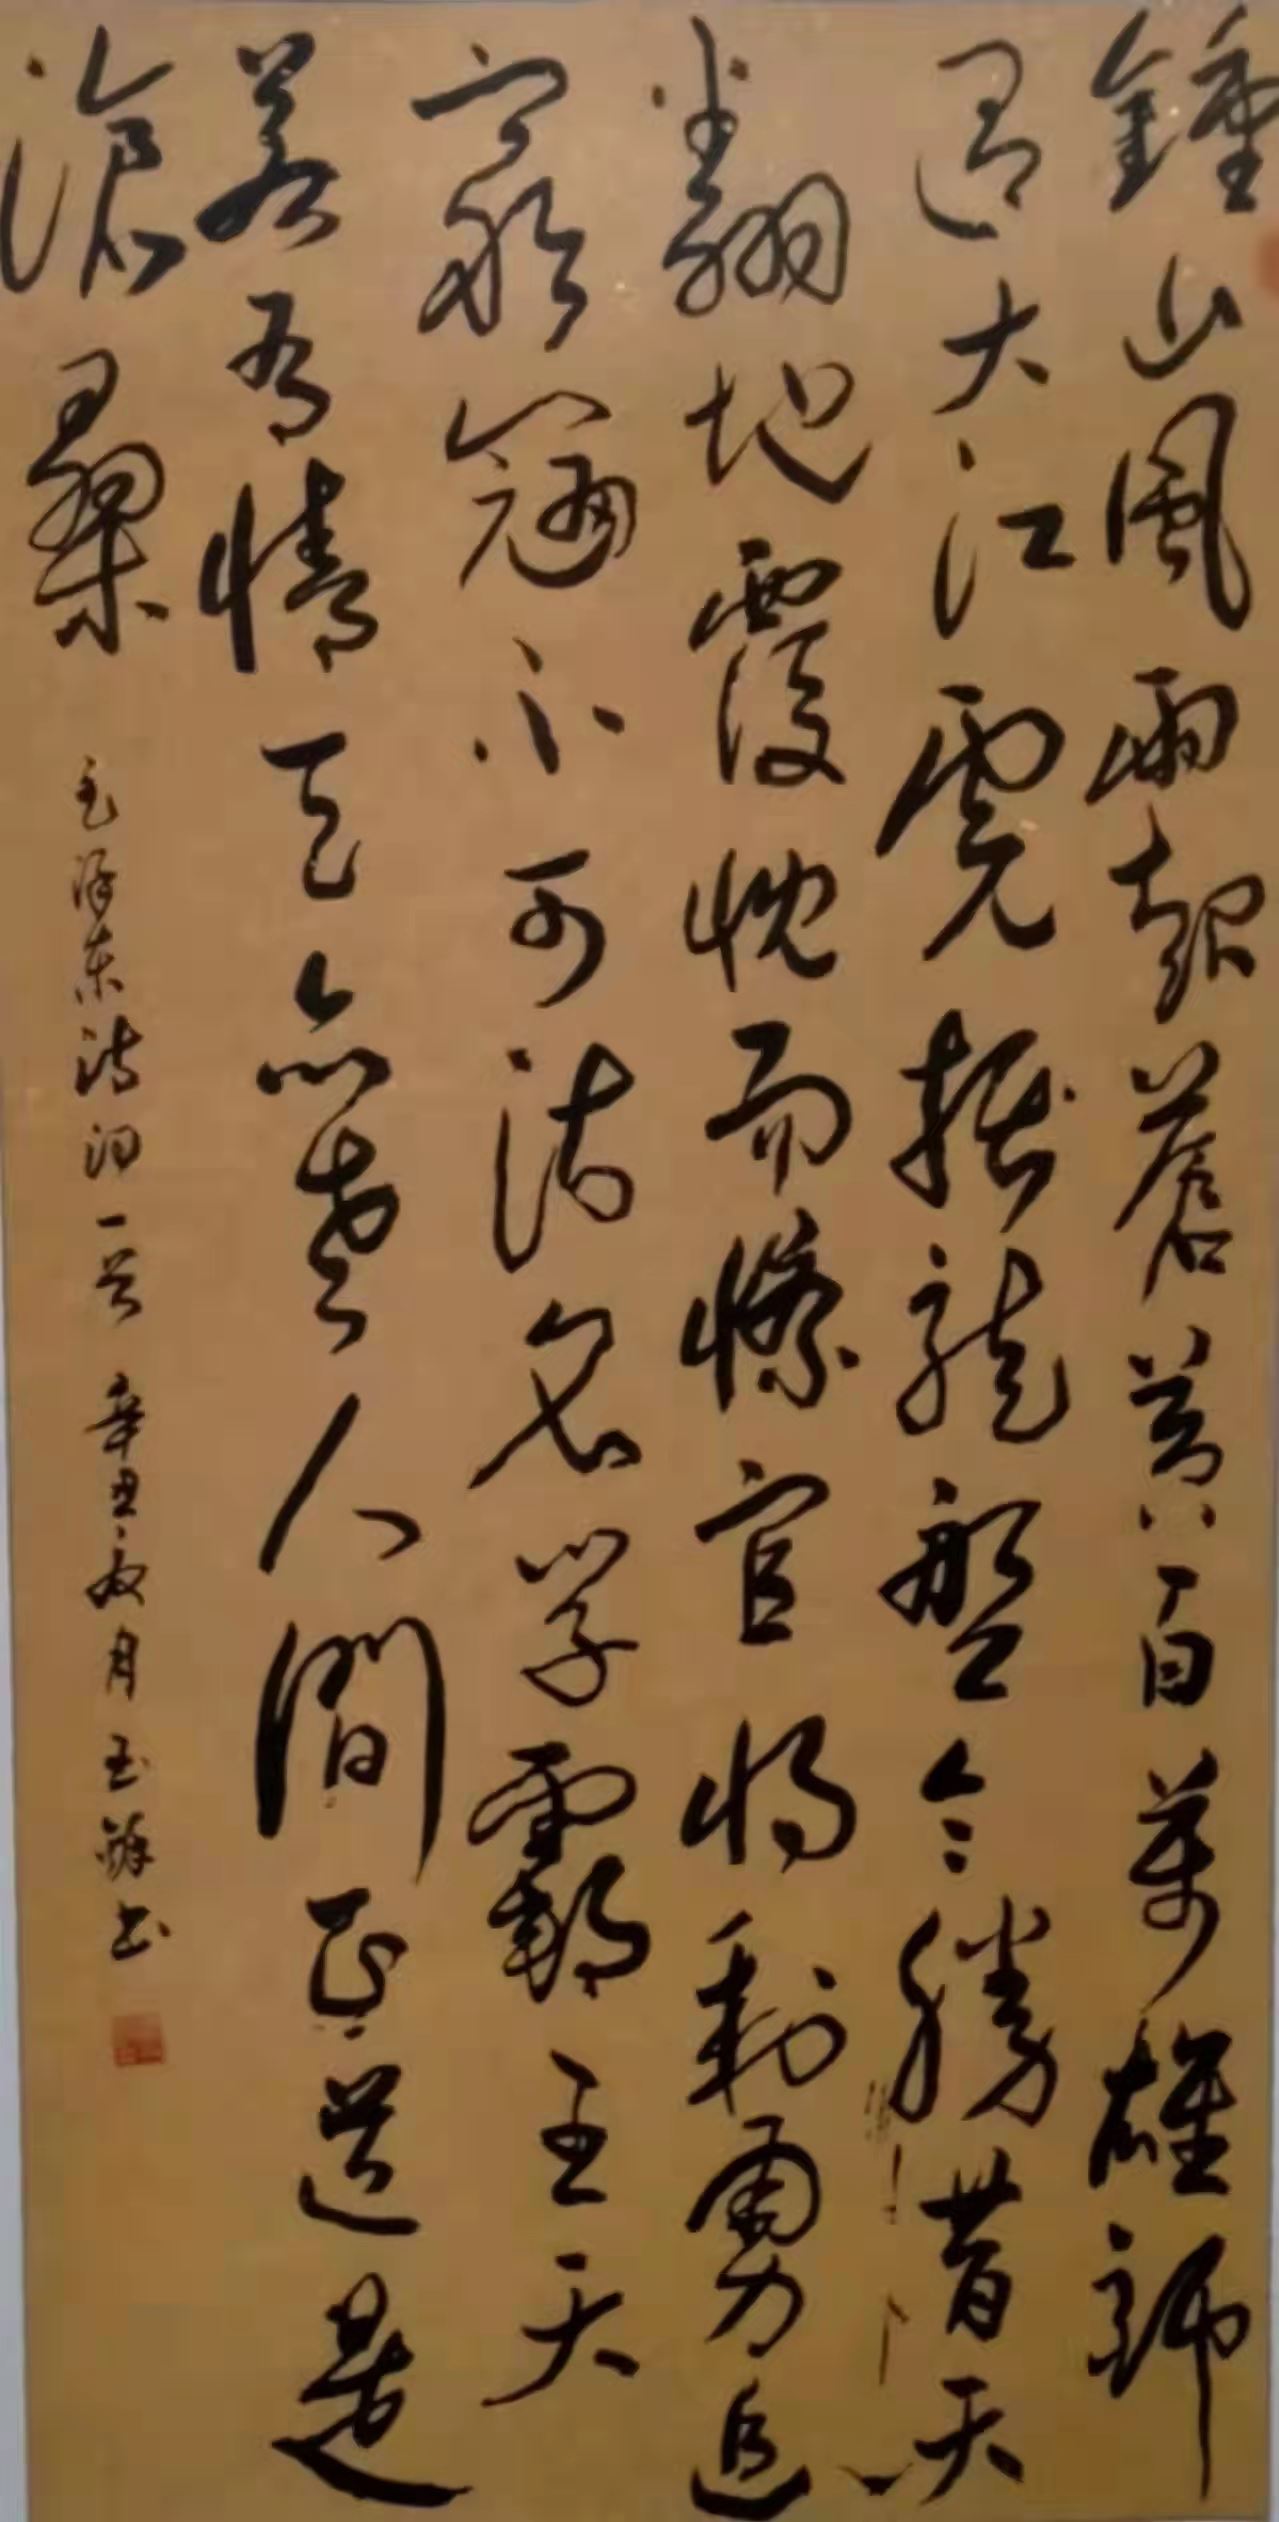 鍾山風雨起蒼黃百萬雄師
過大江虎據龍盤今勝昔天
翻地覆慨而慷宜将剩勇追
窮寇不可沽名学霸王天
若有情天亦老人間正道是
滄桑
毛泽东诗词一首 辛丑夏月玉书